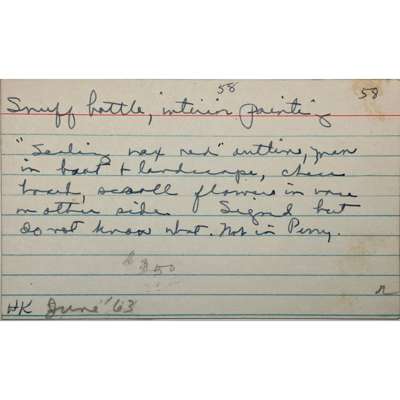 58 58
Snuff bottle, interior painting
"Sealing wax red" outline, man
in boat + landscape,
scroll flowers in vase
on other side. Signed but
do not know what. Not in Perry.
50
HK June '63